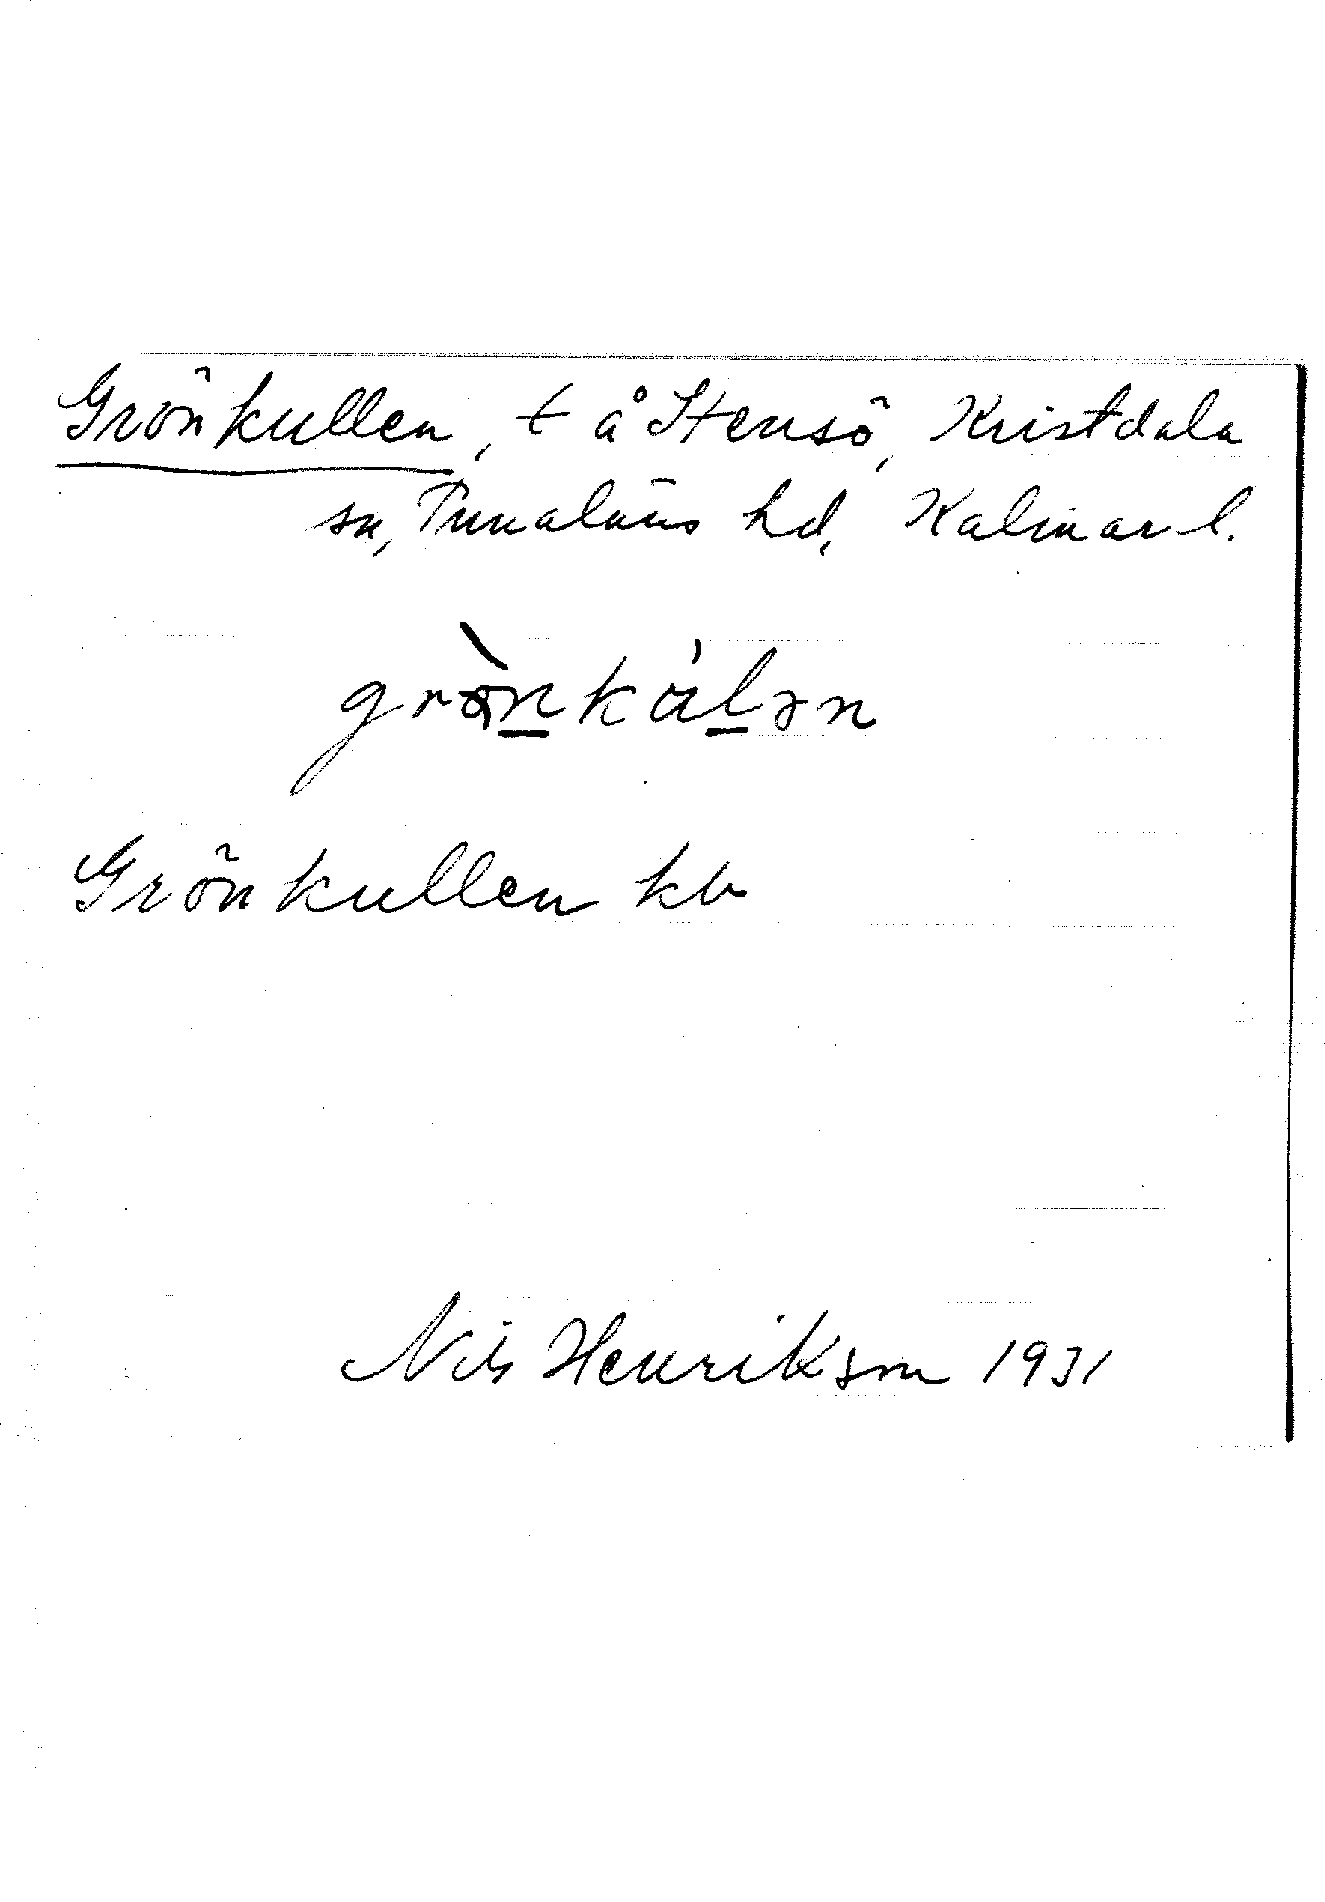 Grönkullen, t å Stensö, Kristdala
sn, Tunaläns hd, Kalmar l.
grö̀nkúlən
Grönkullen kb
Nils Henrikson 1931